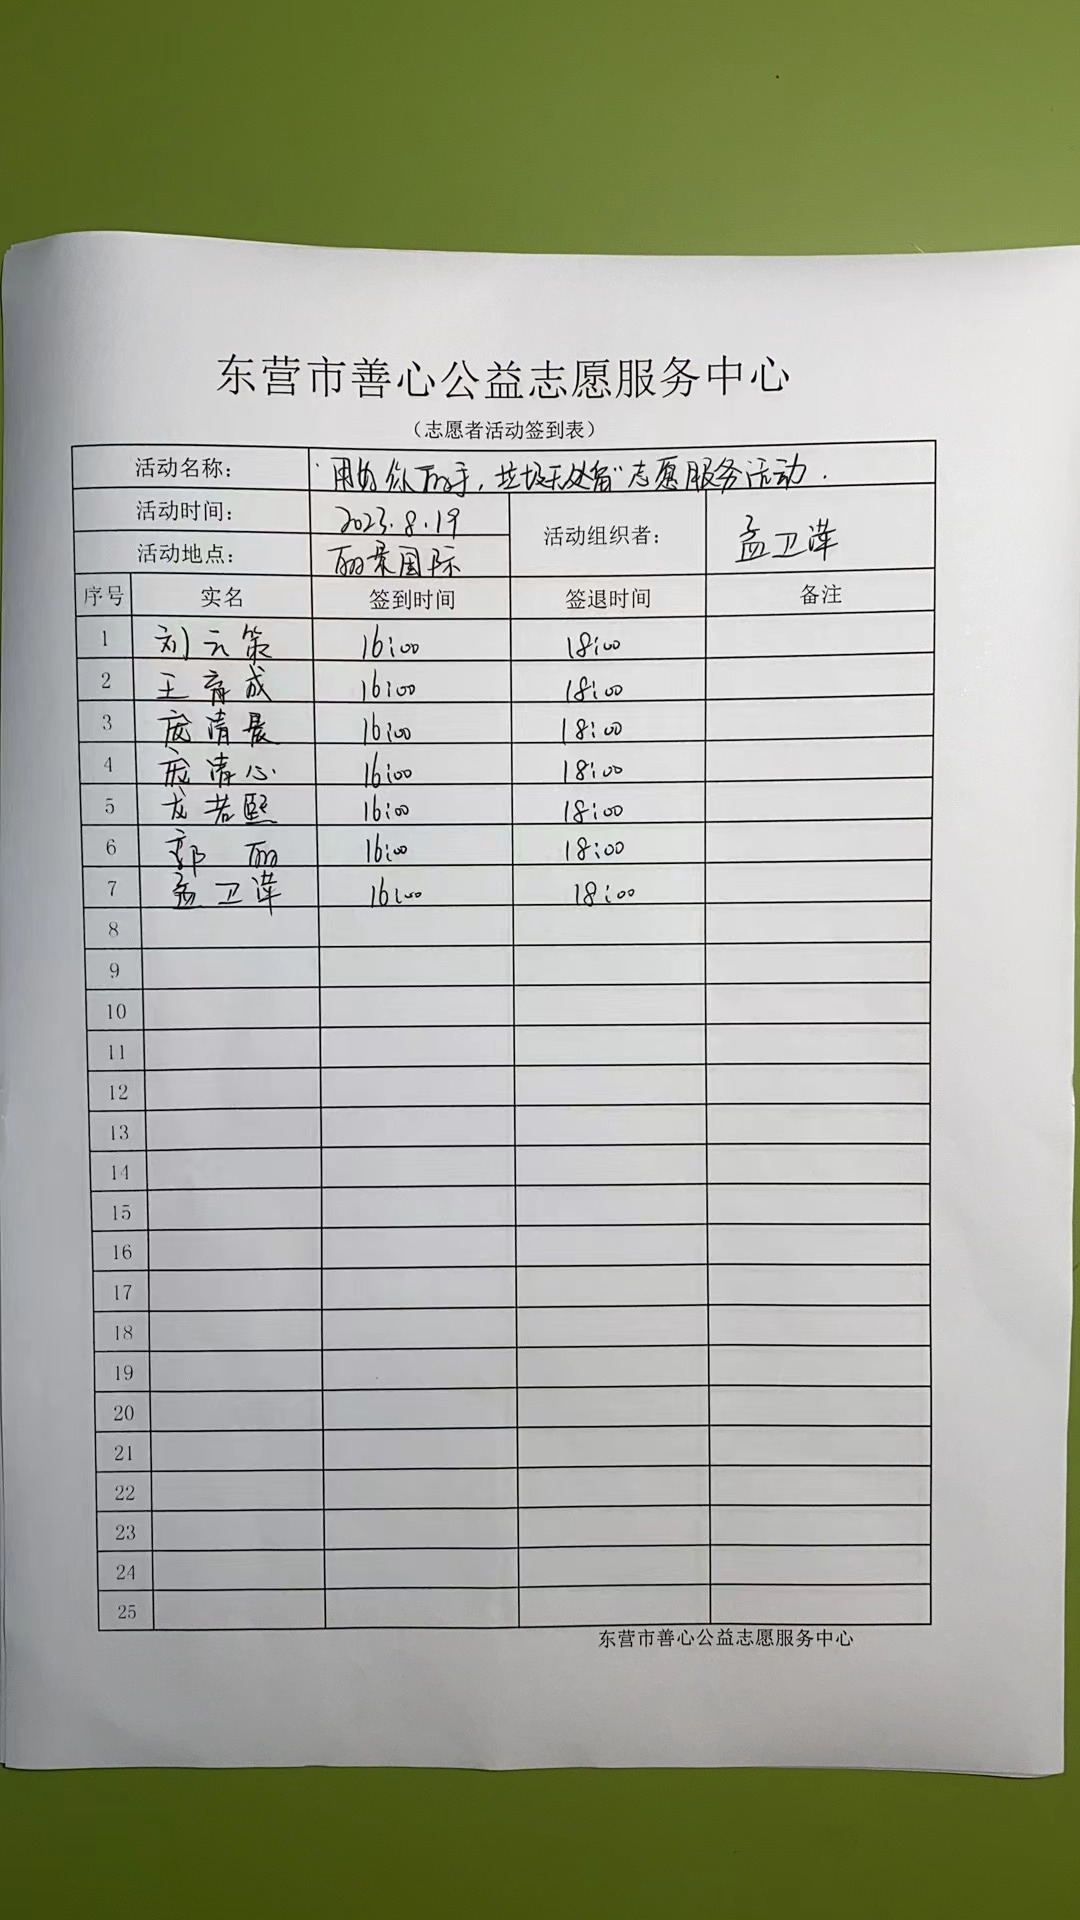 东营市善心公益志愿服务中心
（志愿者活动签到表）
活动名称： "用好你的手，垃圾无处留"志愿服务活动.
活动时间： 2023.8.19 活动组织者： 孟卫萍
活动地点： 丽景国际
序号 实名 签到时间 签退时间 备注
1 刘云策 16:00 18:00
2 王育成 16:00 18:00
3 庞清晨 16:00 18:00
4 庞清心 16:00 18:00
5 若熙 16:00 18:00
6 郭丽 16:00 18:00
7 孟卫萍 16:00 18:00
8
9
10
11
12
13
14
15
16
17
18
19
20
21
22
23
24
25
东营市善心公益志愿服务中心